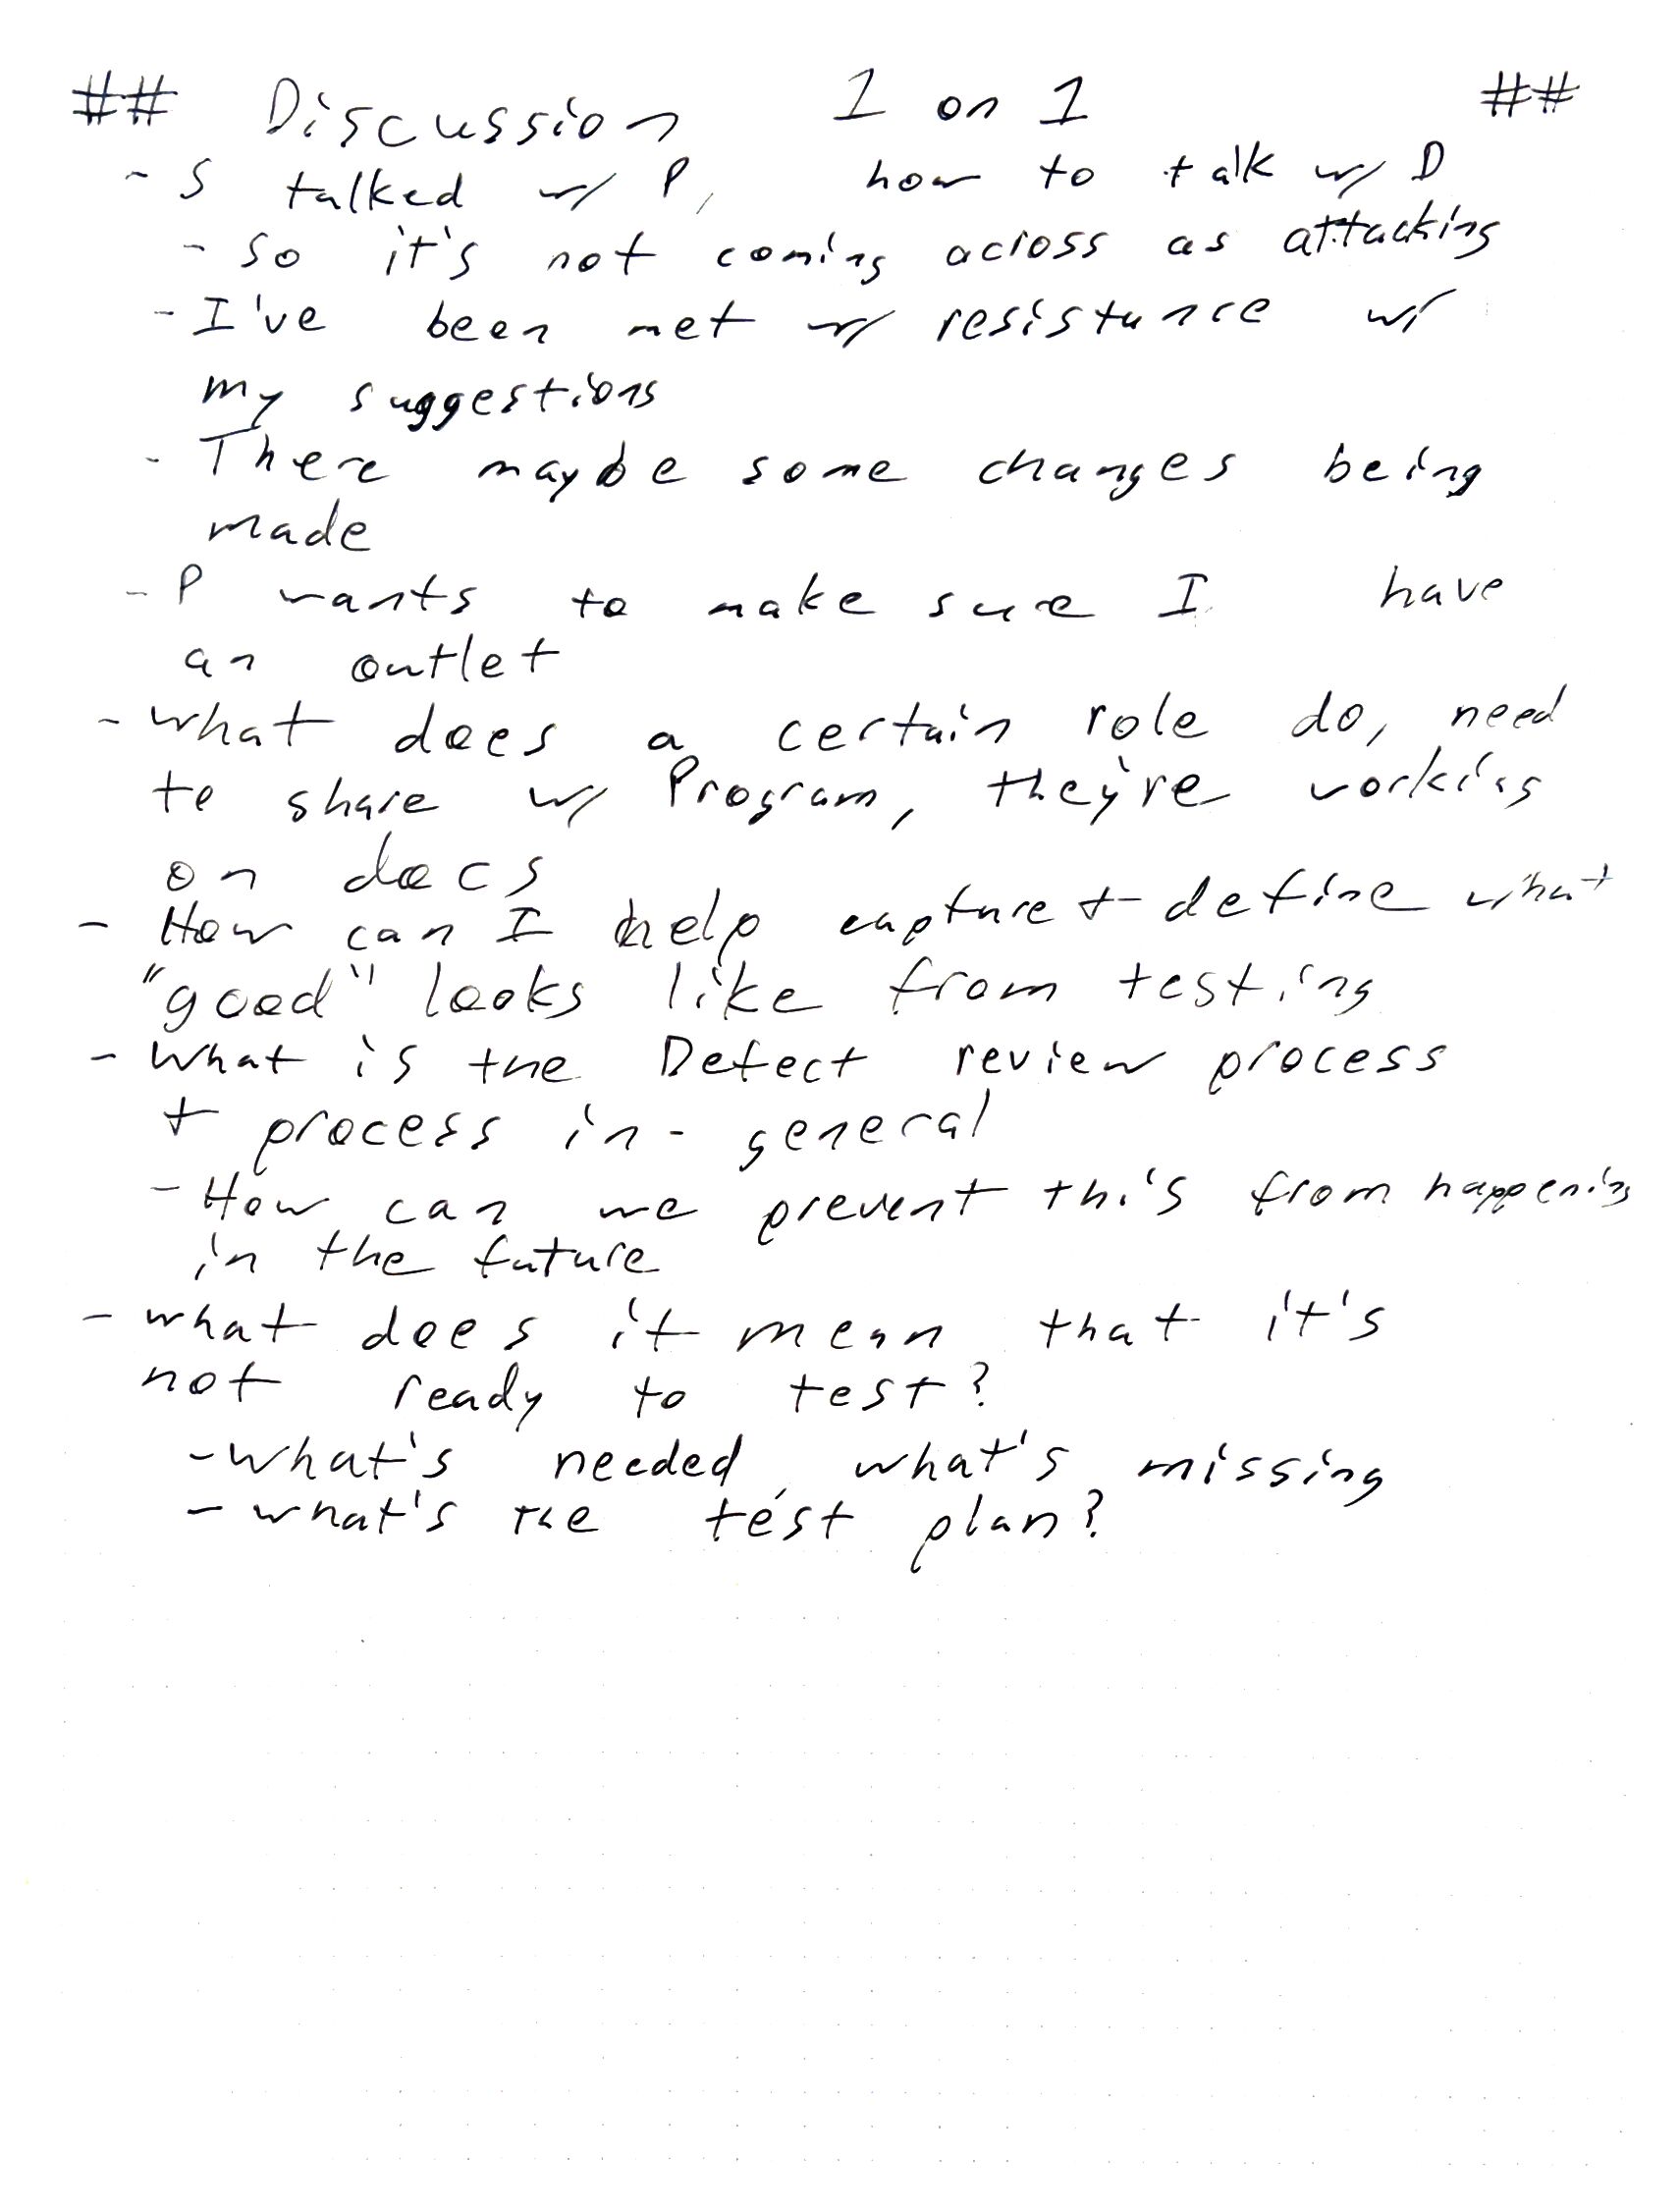 ## Discussion 1 on 1 ##
- S talked w/ P, how to talk w/ D
- so it's not coming across as attacking
- I've been met w/ resistance w/
my suggestions
- There maybe some changes being
made
- P wants to make sure I have
an outlet
- what does a certain role do, need
to share w/ Program, they're working
on docs
- How can I help capture + define what
"good" looks like from testing
- What is the Defect review process
+ process in-general
- How can we prevent this from happening
in the future
- what does it mean that it's
not ready to test?
- what's needed, what's missing
- what's the test plan?